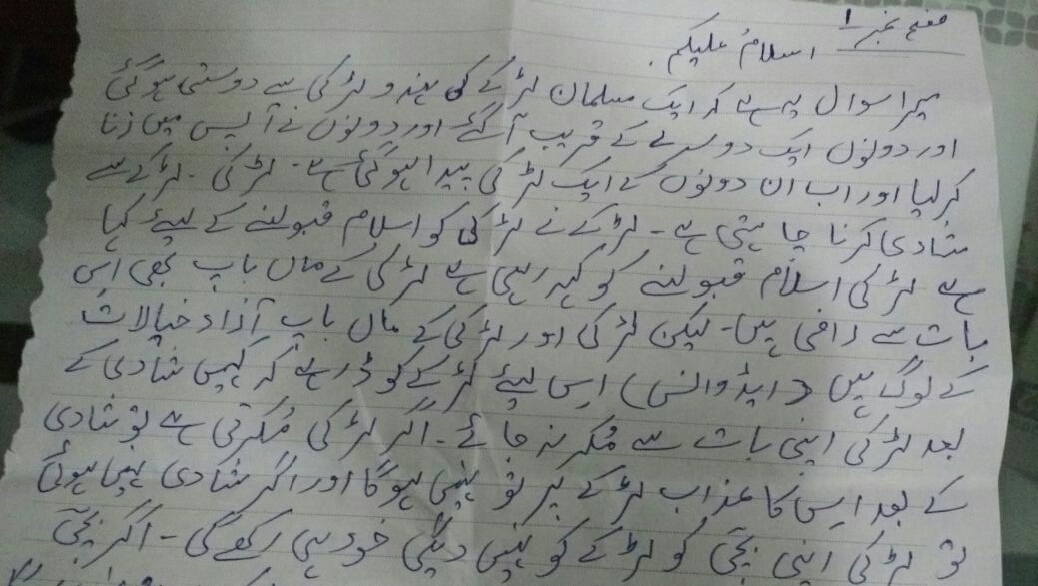 صفحہ نمبر 1
اسلامُ علیکم.
میرا سوال یہ ہے کہ ایک مسلمان لڑکے کی ہندو لڑکی سے دوستی ہوگئی
اور دونوں ایک دوسرے کے قریب آگئے اور دونوں نے آپس میں زنا
کرلیا اور اب ان دونوں کے ایک لڑکی پیدا ہوگئی ہے۔ لڑکی ۔ لڑکے سے
شادی کرنا چاہتی ہے۔ لڑکے نے لڑکی کو اسلام قبولنے کے لیئے کہا
ہے لڑکی اسلام قبولنے کو کہہ رہی ہے لڑکی کے ماں باپ بھی اس
بات سے راضی ہیں۔ لیکن لڑکی اور لڑکی کے ماں باپ آزاد خیالات
کے لوگ ہیں (ایڈوانس) اس لیئے لڑکے کو ڈر ہے کہ کہیں شادی کے
بعد لڑکی اپنی بات سے مُکر نہ جائے۔ اگر لڑکی مُکرتی ہے تو شادی
کے بعد اس کا عذاب لڑکے پر تو نہیں ہوگا اور اگر شادی نہیں ہوئی
تو لڑکی اپنی بچی کو لڑکے کو نہیں دیگی خود ہی رکھے گی۔ اگر بچی